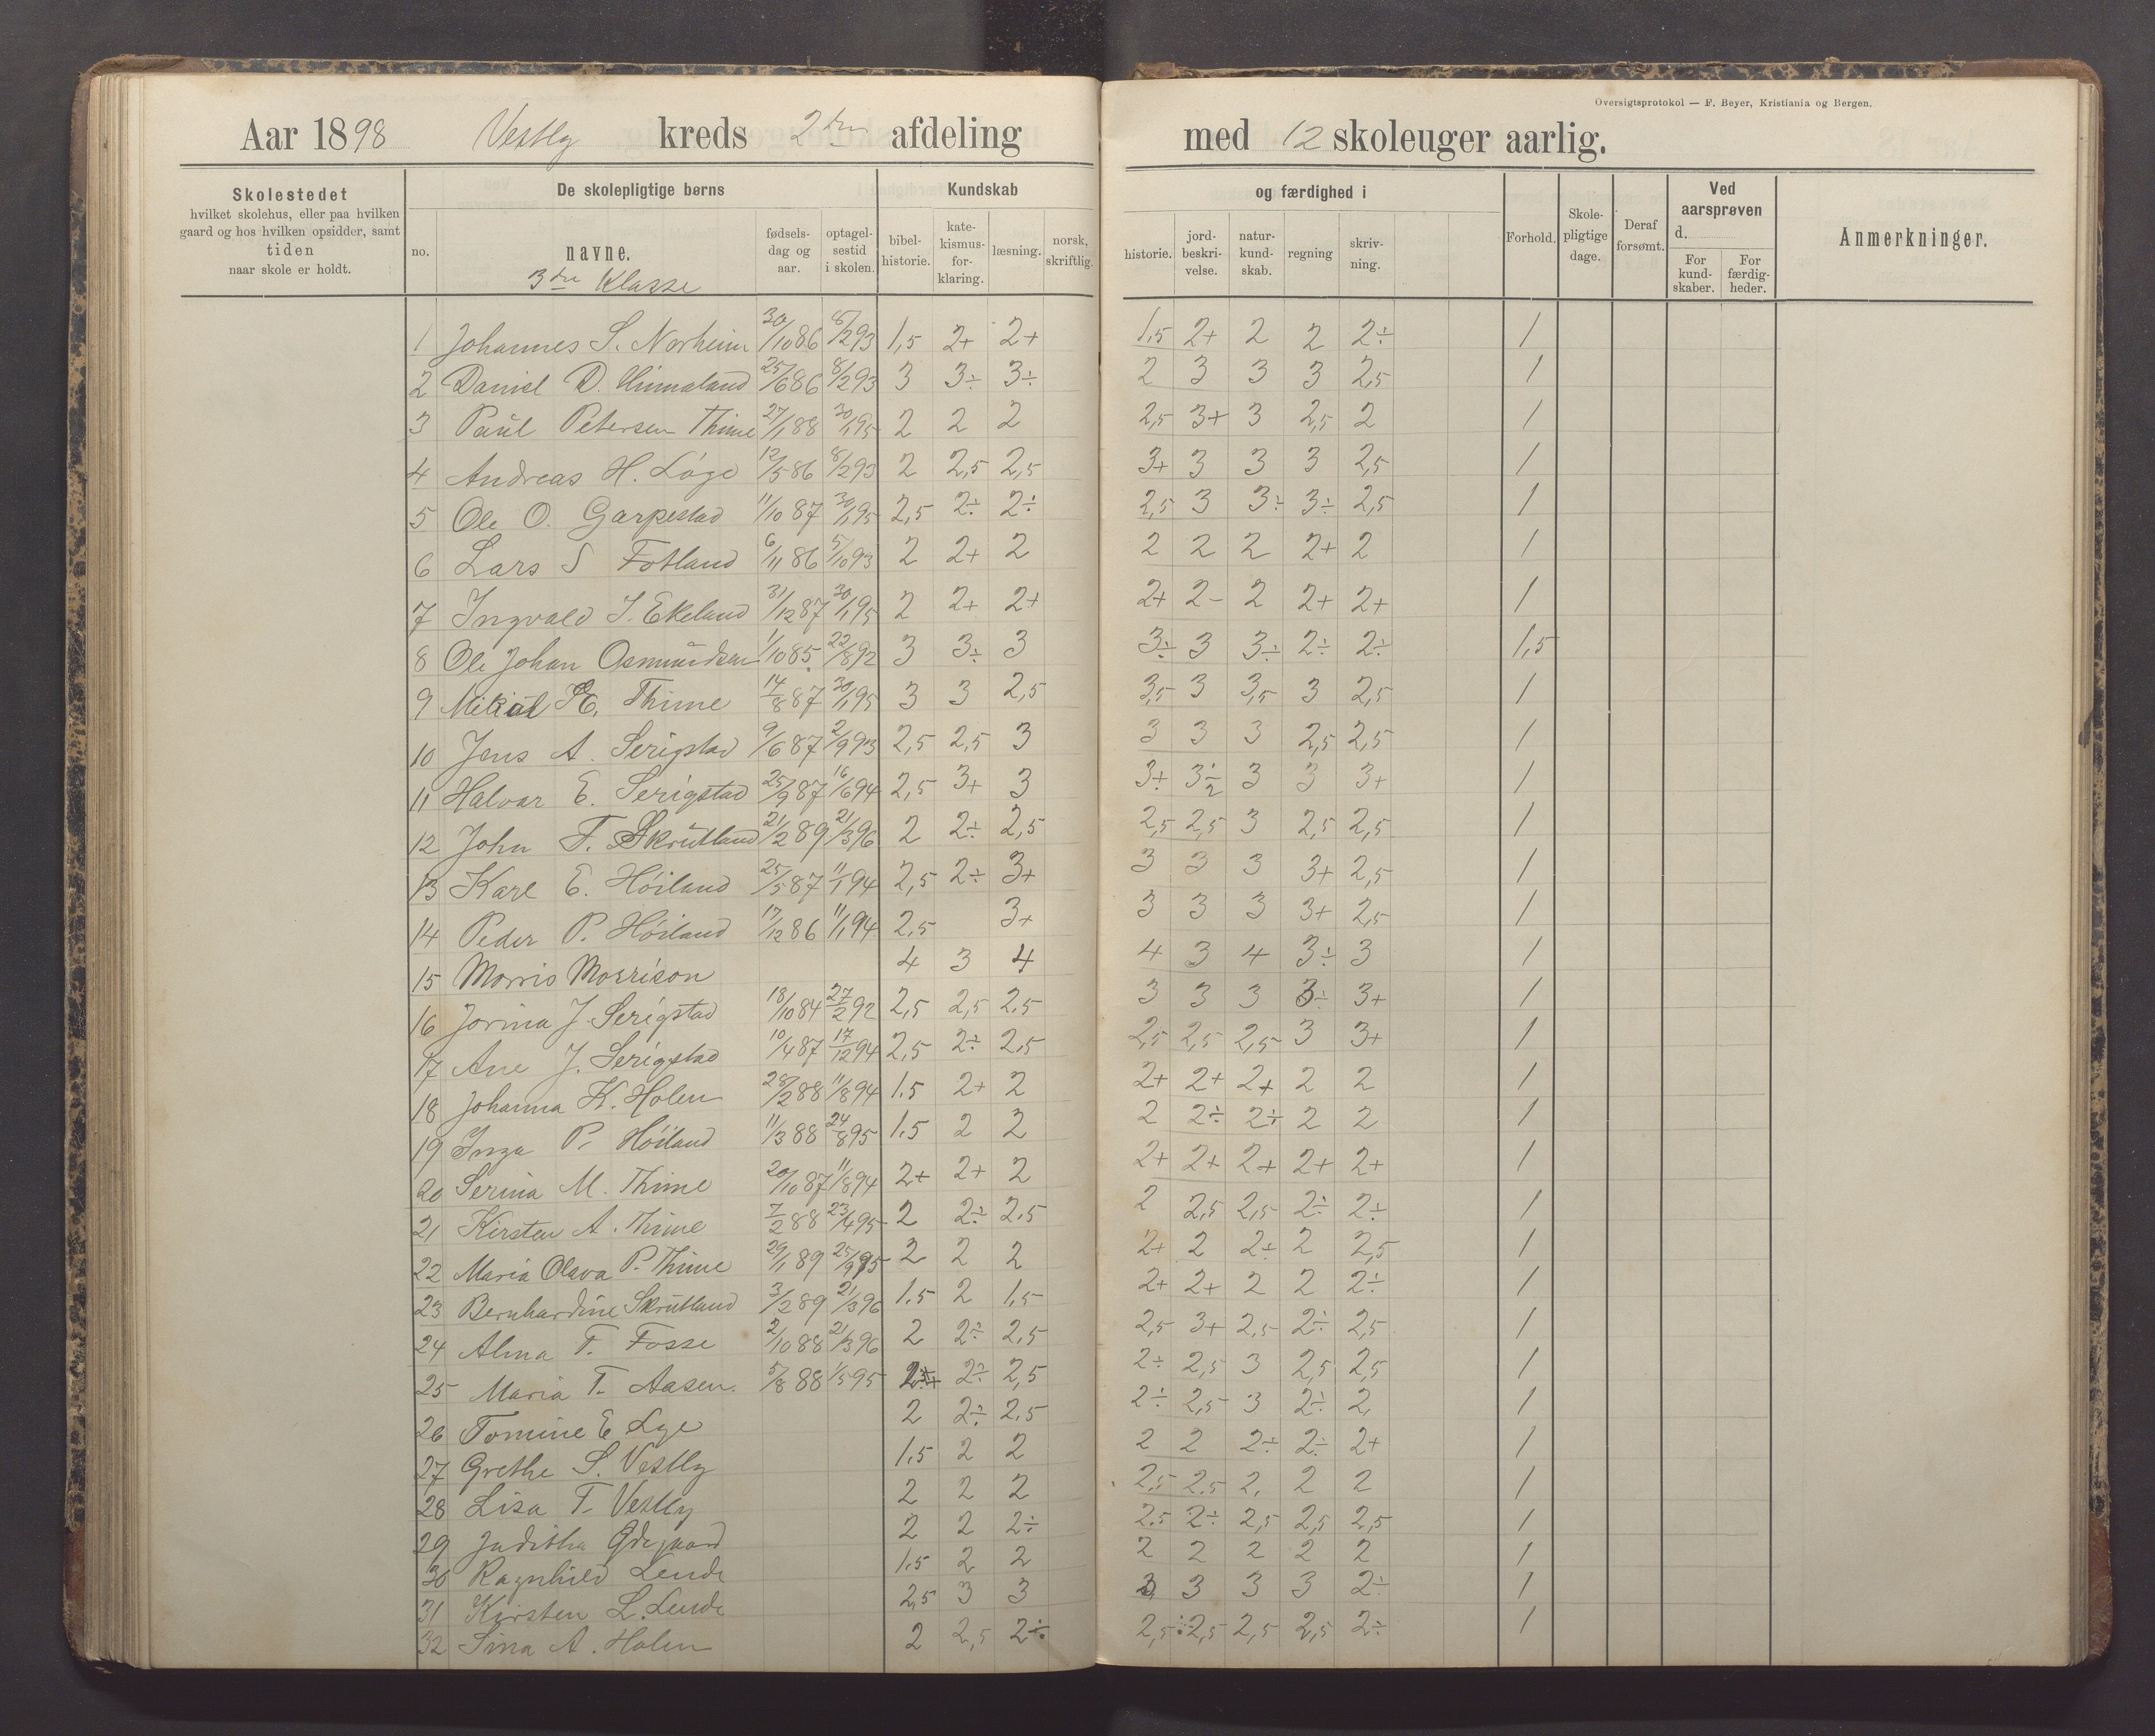 Oversigtsprotokol — F. Beyer, Kristiania og Bergen.
Aar 1898 Vestly kreds 2den afdeling med 12 skoleuger aarlig.
Skolestedet hvilket skolehus, eller paa hvilken gaard og hos hvilken opsidder, samt tiden naar skole er holdt.
De skolepligtige børns
no. navne. fødselsdag og aar. optagelsestid i skolen.
Kundskab og færdighed i
bibelhistorie. katekismusforklaring. læsning. norsk, skriftlig. historie. jordbeskrivelse. naturkundskab. regning skrivning.
Forhold. Skolepligtige dage. Deraf forsømt.
Ved aarsprøven d.
For kundskaber. For færdigheder.
Anmerkninger.
3die Klasse
1 Johannes S. Norheim 30/10 86 8/2 93 1,5 2+ 2+ 1,5 2+ 2 2 2÷ 1
2 Daniel D. Hinnaland 25/6 86 8/2 93 3 3÷ 3÷ 2 3 3 3 2,5 1
3 Paul Petersen Thime 27/1 88 30/1 95 2 2 2 2,5 3+ 3 2,5 2 1
4 Andreas H. Løge 12/5 86 8/2 93 2 2,5 2,5 3+ 3 3 3 2,5 1
5 Ole O. Garpestad 11/10 87 30/1 95 2,5 2÷ 2÷ 2,5 3 3÷ 3÷ 2,5 1
6 Lars S Fotland 6/11 86 5/10 93 2 2+ 2 2 2 2 2+ 2 1
7 Ingvald J. Ekeland 31/12 87 30/1 95 2 2+ 2+ 2+ 2- 2 2+ 2+ 1
8 Ole Johan Osmundsen 1/10 85. 22/8 92 3 3÷ 3 3÷ 3 3÷ 2÷ 2÷ 1,5
9 Mikal K. Thime 14/8 87 30/1 95 3 3 2,5 3,5 3 3,5 3 2,5 1
10 Jens A. Serigstad 9/6 87 2/9 93 2,5 2,5 3 3 3 3 2,5 2,5 1
11 Halvar E. Serigstad 25/9 87 16/6 94 2,5 3+ 3 3+ 3÷ 3 3 3+ 1
12 John T. Skrutland 21/2 89 21/3 96 2 2÷ 2,5 2,5 2,5 3 2,5 2,5 1
13 Karl E. Høiland 25/5 87 11/1 94 2,5 2÷ 3+ 3 3 3 3+ 2,5 1
14 Peder P. Høiland 17/12 86 11/1 94 2,5 3+ 3 3 3 3+ 2,5 1
15 Morris Morrison 4 3 4 4 3 4 3÷ 3 1
16 Jorina J. Serigstad 18/10 84 27/2 92 2,5 2,5 2,5 3 3 3 3÷ 3+ 1
17 Ane J. Serigstad 10/4 87 17/12 94 2,5 2÷ 2,5 2,5 2,5 2,5 3 3+ 1
18 Johanna K. Holen 28/2 88 11/8 94 1.5 2+ 2 2+ 2+ 2+ 2 2 1
19 Inga P. Høiland 11/3 88 24/8 95 1.5 2 2 2 2÷ 2÷ 2 2 1
20 Serina M. Thime 20/10 87 11/8 94 2+ 2+ 2 2+ 2+ 2+ 2+ 2+ 1
21 Kirsten A. Thime 7/2 88 23/4 95 2 2÷ 2.5 2 2,5 2,5 2÷ 2÷ 1
22 Maria Olava P. Thime 29/1 89 25/9 95 2 2 2 2+ 2 2÷ 2 2,5 1
23 Bernhardine Skrutland 3/2 89 21/3 96 1.5 2 1,5 2+ 2+ 2 2 2÷ 1
24 Alma T. Fosse 2/10 88 21/3 96 2 2÷ 2,5 2,5 3+ 2,5 2÷ 2,5 1
25 Maria T. Aasen. 5/8 88 1/5 95 2÷ 2,5 2÷ 2,5 3 2,5 2,5 1
26 Tomine E Lye 2 2÷ 2.5 2÷ 2,5 3 2÷ 2 1
27 Grethe S. Vestly 1.5 2 2 2 2 2÷ 2÷ 2+ 1
28 Lisa T. Vestly 2 2 2 2,5 2.5 2. 2 2 1
29 Juditha 2 2 2÷ 2.5 2÷ 2,5 2,5 2,5 1
30 Ragnhild Lende 1.5 2 2 2 2 2 2 2 1
31 Kirsten L. Lende 2,5 3 3 3 3 3 3 2÷ 1
32 Sina A. Holen 2 2,5 2÷ 2,5÷ 2,5 2,5 2,5 2÷ 1